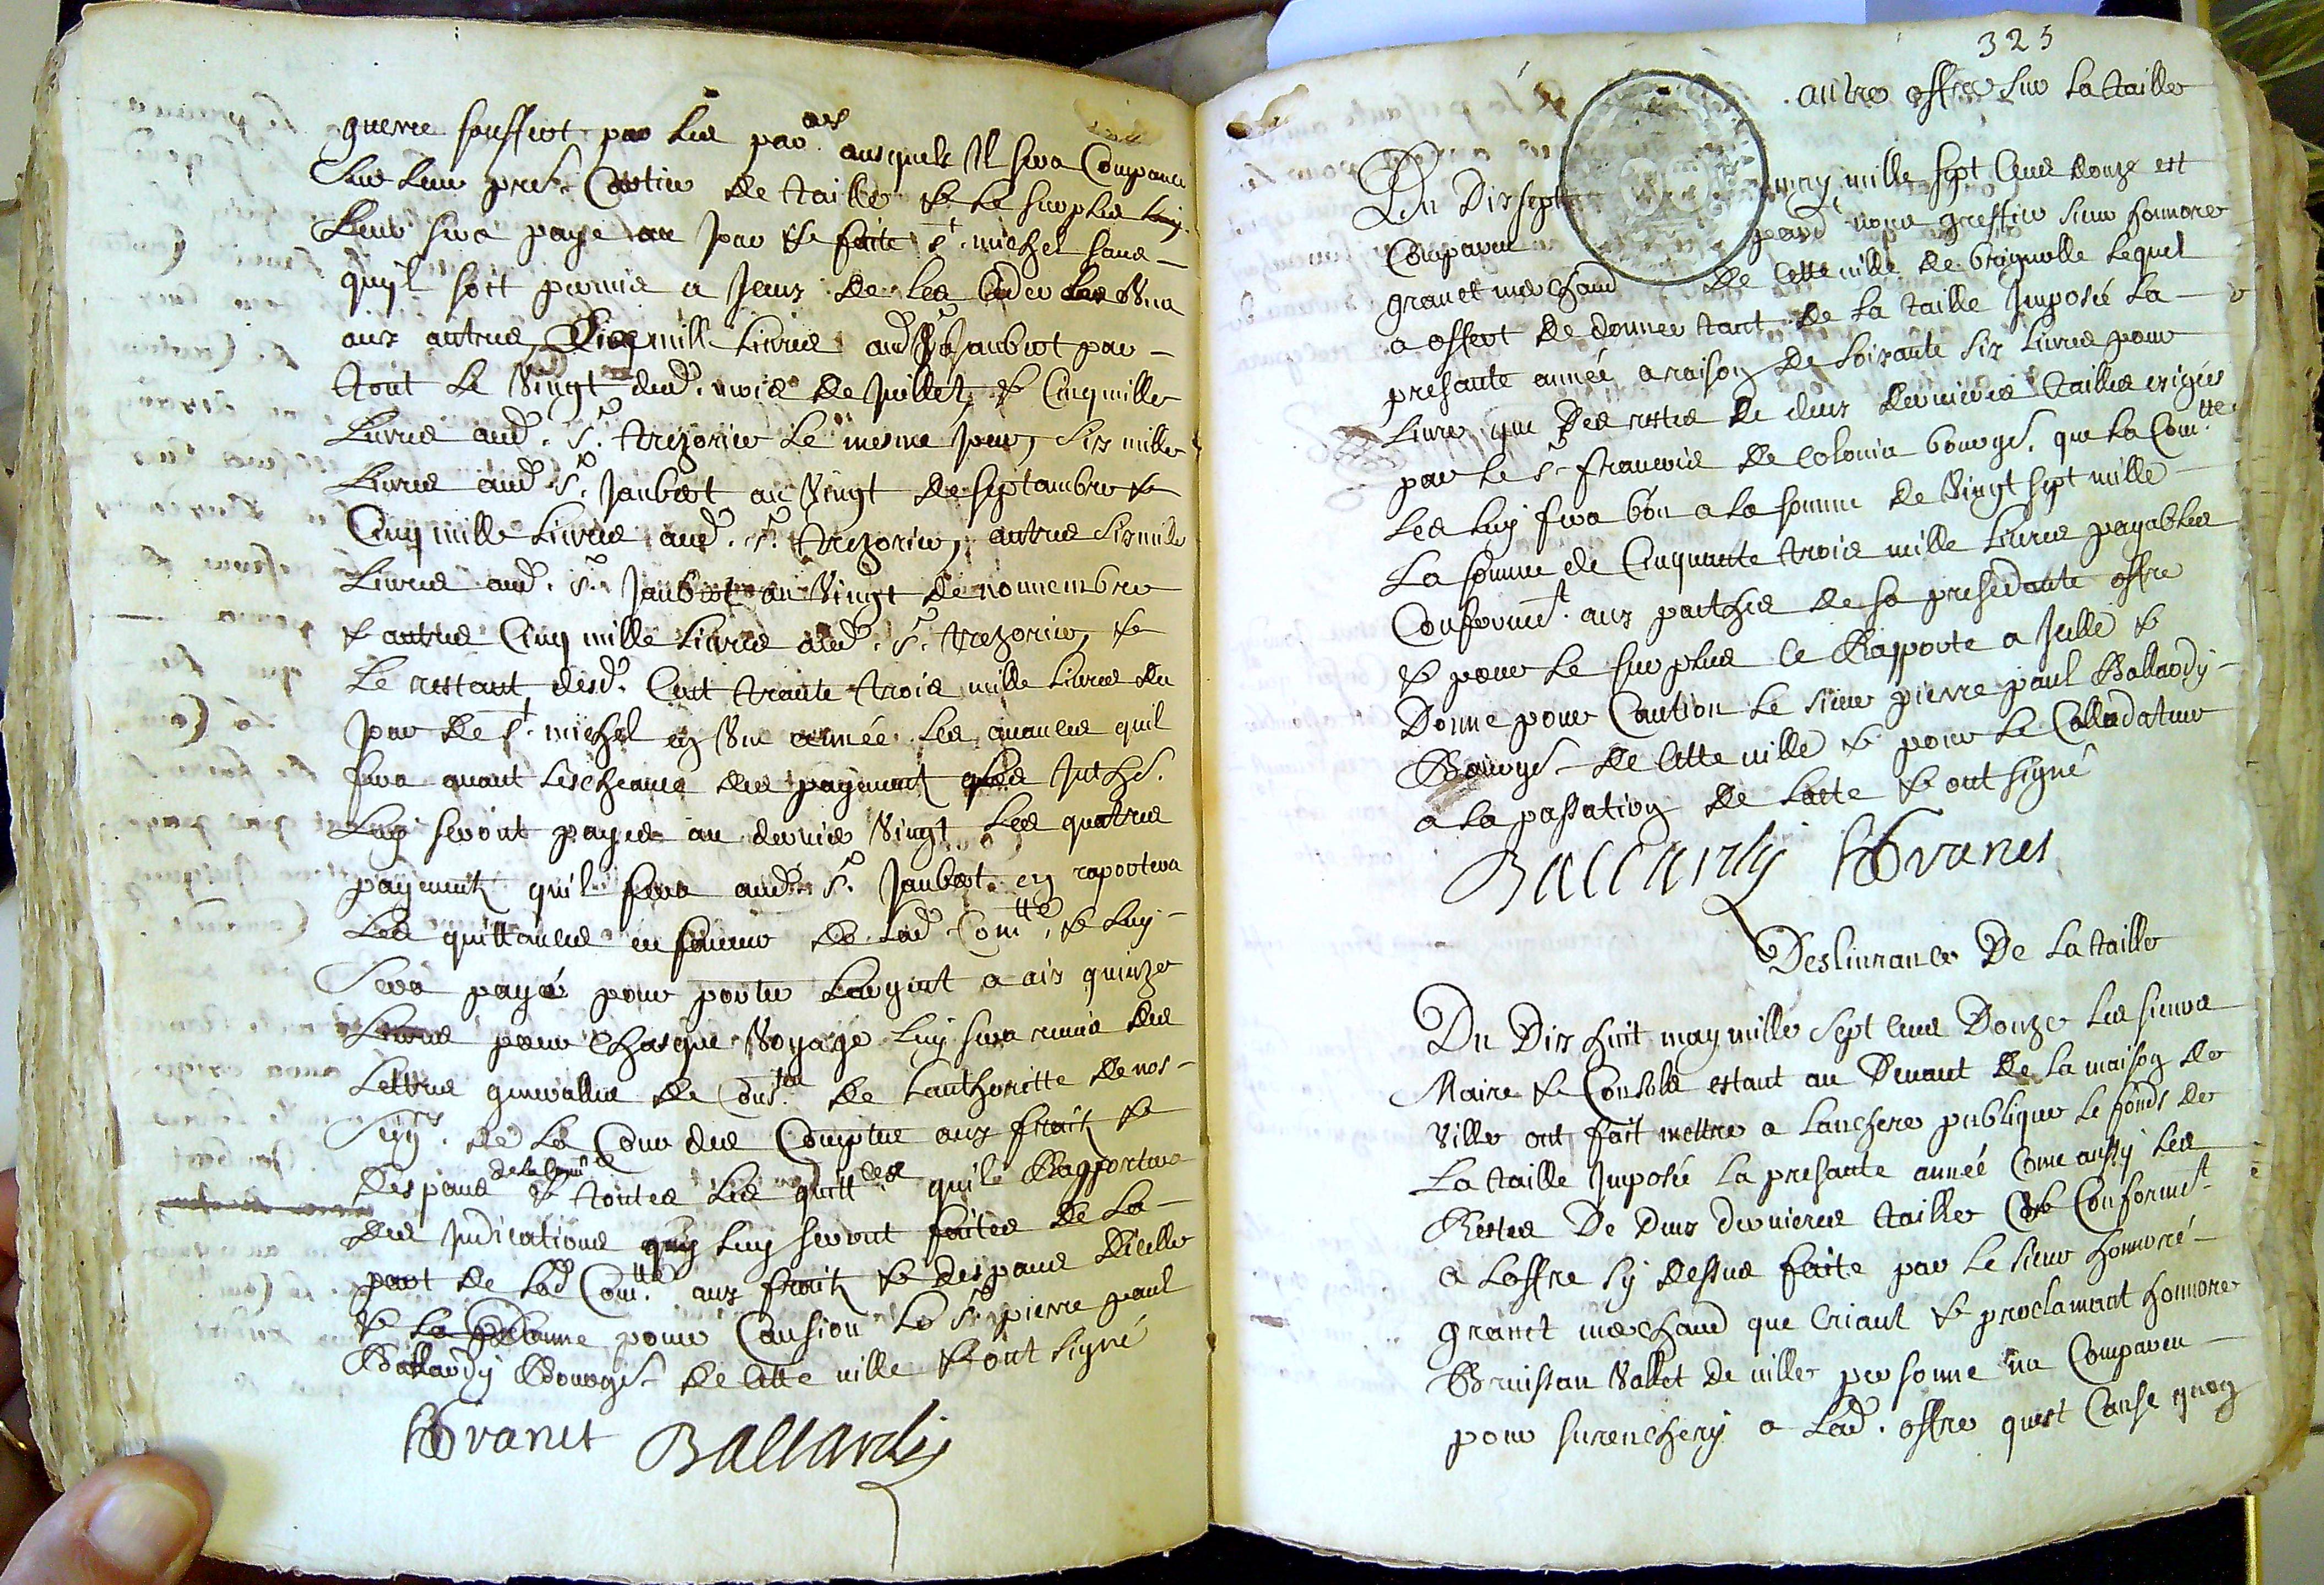 guerre souffert par les par.ers ausquels Il sera Compancé
Sur leur pres.t Cartier de taille & le surplus
Leur sera payé au Jour & feste S.t michel sans
quyl soit permis a Jeux de les Ceder les Uns
aux autres, mille livres aud. S.r Jaubert par
tout le Vingt dud. mois de Juillet, & Cinq mille
Livres aud. S.r trezorier le mesme Jour, Six mille
Livres aud. S.r Jaubert au Vingt de septambre &
Cinq mille Livres aud. S.r trezorier, autres six mille
Livres aud. S.r Jaubert au Vingt de nouvembre
& autres Cinq mille Livres aud. S.r trezorier, &
Le restant desd. Cent trante trois mille Livres du
Jour de S.t michel en Une année les avances quil
fera avant lescheance des payements les Inthes.
Luy seront payes au denier Vingt Les quatres
payements quil fera aud. S.r Jaubert en raportera
Les quittances en faveur de Lad. Com.tté, & Luy
Sera payé pour porter Largent a aix quinze
Livres pour Chasque Voyage Luy sera remis des
Lettres generalles de Const.on de Lauthoritte de nos
Seig.rs de la Cour des Comptes aux fraix &
despans de la Com.té & toutes Les quitt.ces quil Rapportera
des Indications quy Luy seront faites de La
part de Lad. Com.tté aux fraix & despans dicelle
& donne pour Causion Le S.r pierre paul
Ballardy Bourgs. de Cette ville & ont signé
hGranet Ballardy
325
autre offre sur La taille
Du Dix sept may mille sept Cens douze est
Comparu pard. nous greffier sieur honnoré
granet marchand de Cette ville de brignolle Lequel
a offert de donner tant de La taille Imposée La
presante année a raison de soixante six Livres pour
Livre que des restes de deux dernieres tailles exigées
par le S.r francois de Colonia bourgs. que la Com.tté
Les Luy fera bon a la somme de Vingt sept mille
La somme de Cinquante trois mille Livres payables
Conformem.t aux pacthes de sa presedante offre
& pour le surplus Ce Rapporte a Jcelle &
Donne pour Caution Le sieur pierre paul Ballardy
Bourgs. de Cette ville & pour le Collodateur
a la passation de Lacte & ont signé
Ballardy hGranet
Deslivrance De La taille
Du Dix huit may mille sept Cens Douze Les sieurs
Maire & Consuls estant au Devant de La maison de
Ville ont fait mettre a Lanchere publique Le fonds de
La taille Imposée La presante année Come aussy Les
Restes De Deux dernieres tailles Conformem.t
a Loffre sy dessus faite par Le sieur honnoré
granet marchand que Criant & proclamant honnoré
Bruissan Vallet de ville personne na Comparu
pour surencherÿ a Lad. offre quest Cause quoy